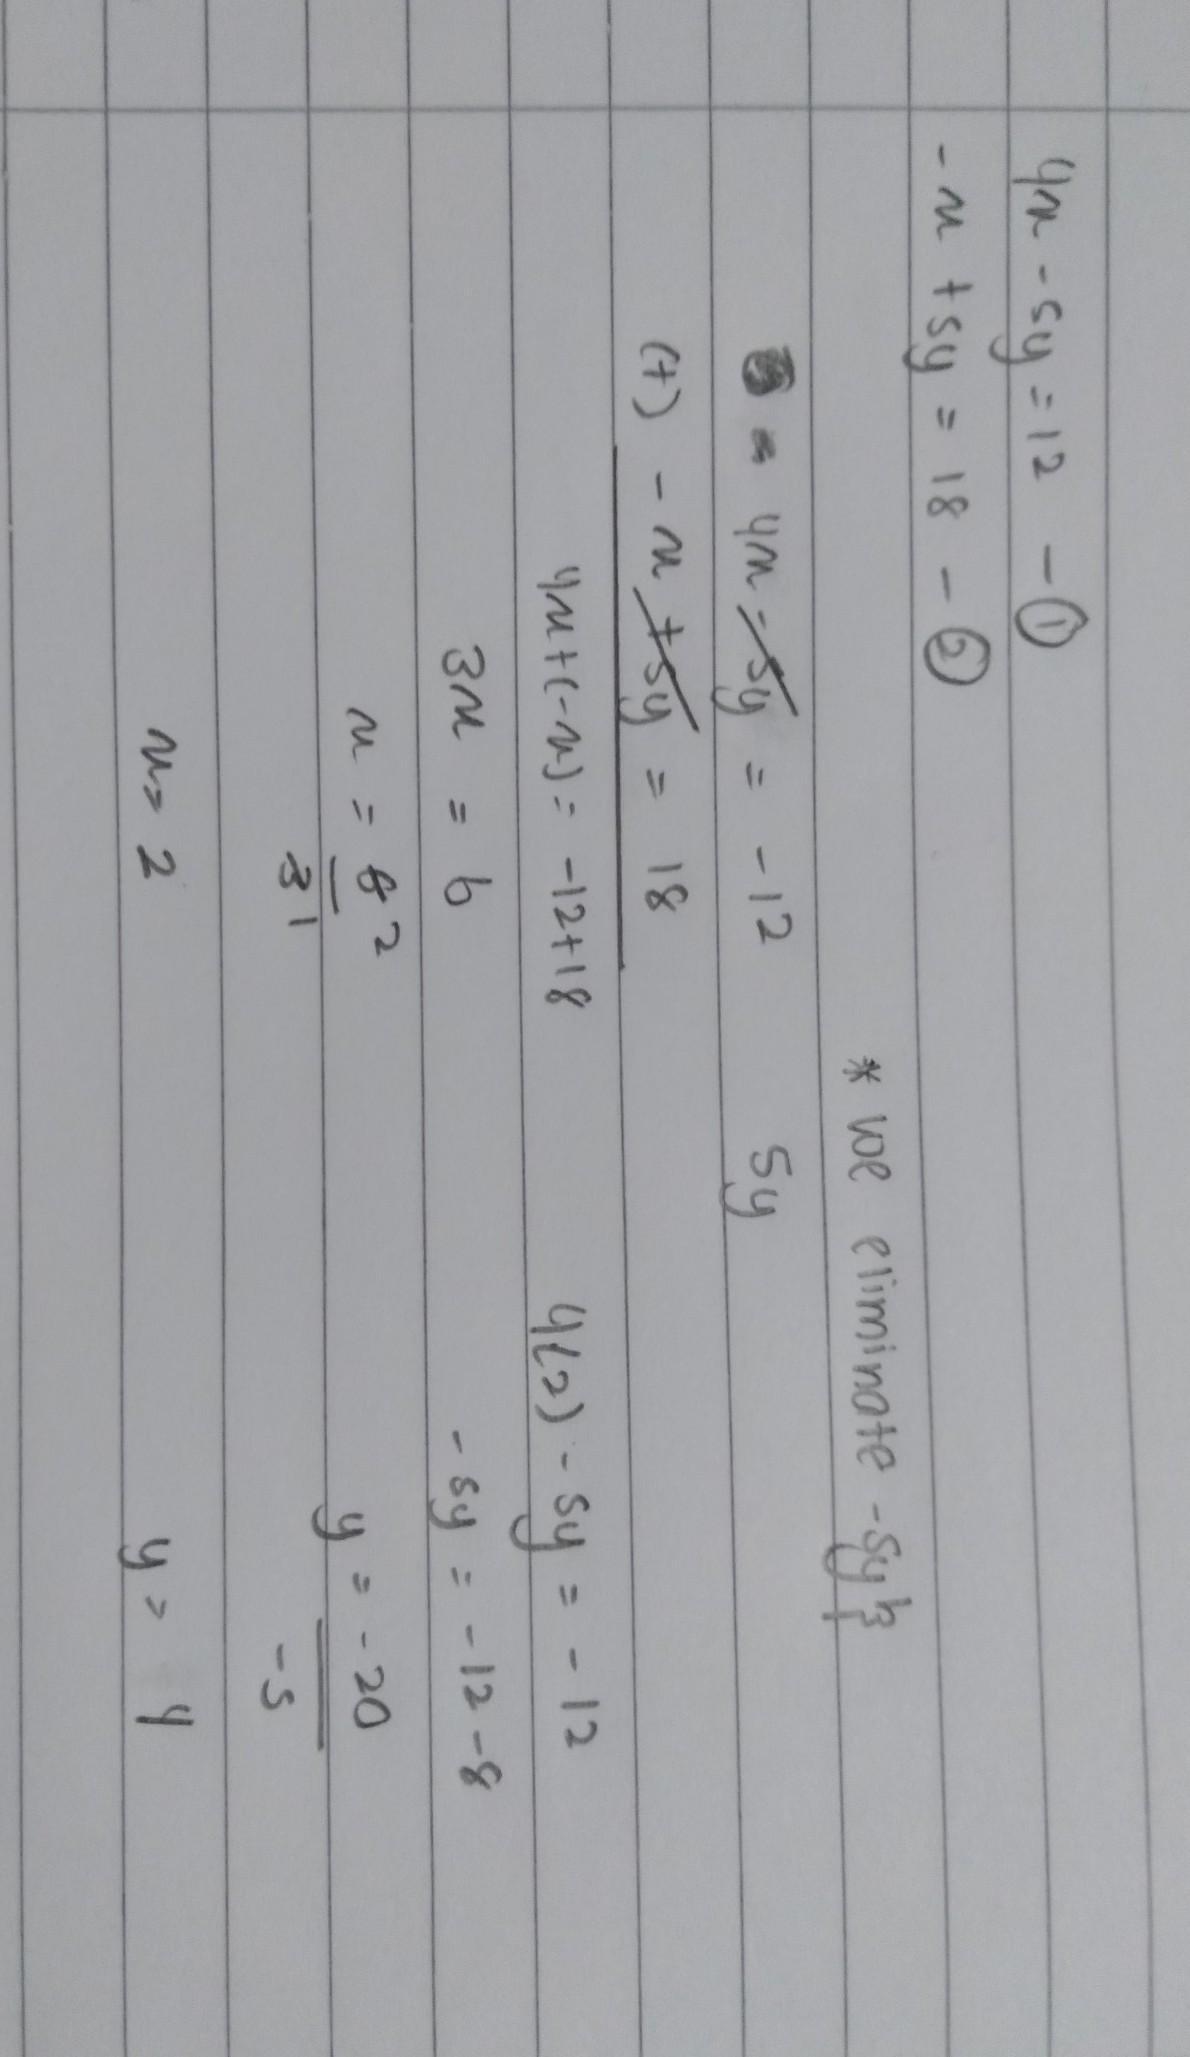 4x - 5y = 12 - ①
- x + 5y = 18 - ②
* we eliminate -5y
4x - 5y = -12 5y
(+) - x + 5y = 18
4x + (-x) = -12 + 18 4(2) - 5y = -12
3x = 6 -5y = -12 - 8
x = 6 2 y = -20
3 1 -5
x = 2 y = 4